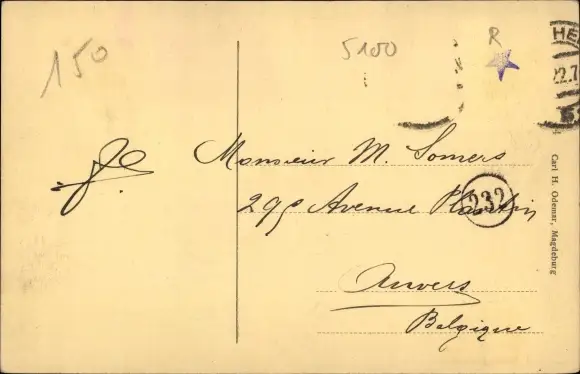 150
5100
R
HE
22.7
Monsieur M. Somers
29s Avenue Plantin
232
Anvers
Belgique
Carl H. Odemar, Magdeburg